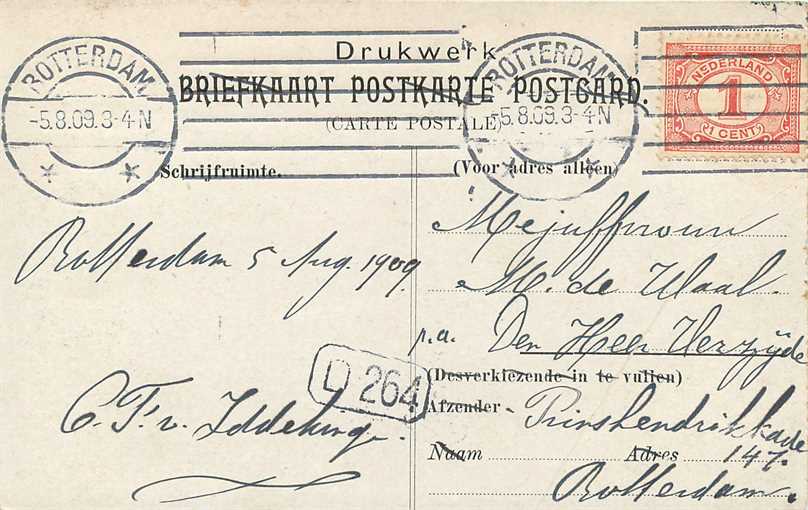 Drukwerk
BRIEFKAART POSTKARTE POSTCARD.
(CARTE POSTALE)
ROTTERDAM
-5.8.09.3-4N
ROTTERDAM
-5.8.09.3-4N
NEDERLAND
1
1 CENT
Schrijfruimte.
(Voor adres alleen)
Rotterdam 5 Aug. 1909
Mejuffrouw
M. de Waal.
p.a. Den Heer Verzijde
D 264
(Desverkiezende in te vullen)
Afzender Prinshendrikkade
Naam Adres 147.
Rotterdam.
C. F. v.